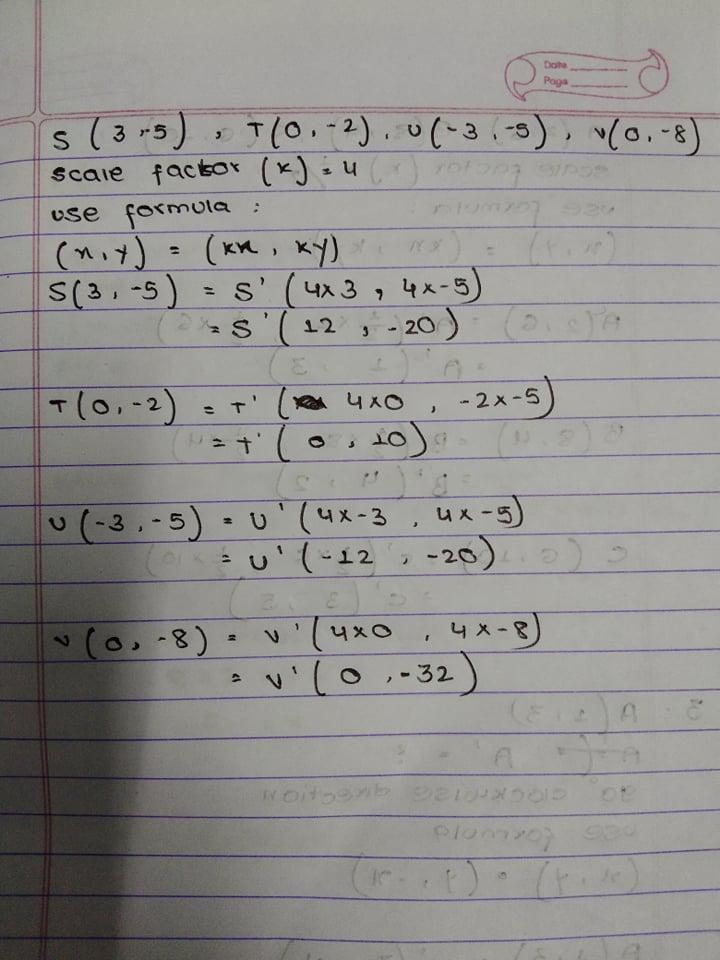 Date
Page
S (3,-5) , T(0,-2), U(-3,-5), V(0,-8)
scale factor (k) = 4
use formula :
(x,y) = (kx, ky)
S(3,-5) = S' (4x3, 4x-5)
= S' (12, -20)
T(0,-2) = T' ( 4x0, -2x-5)
= T' (0, 10)
U(-3,-5) = U' (4x-3, 4x-5)
= U' (-12, -20)
V(0,-8) = V' (4x0, 4x-8)
= V' (0, -32)